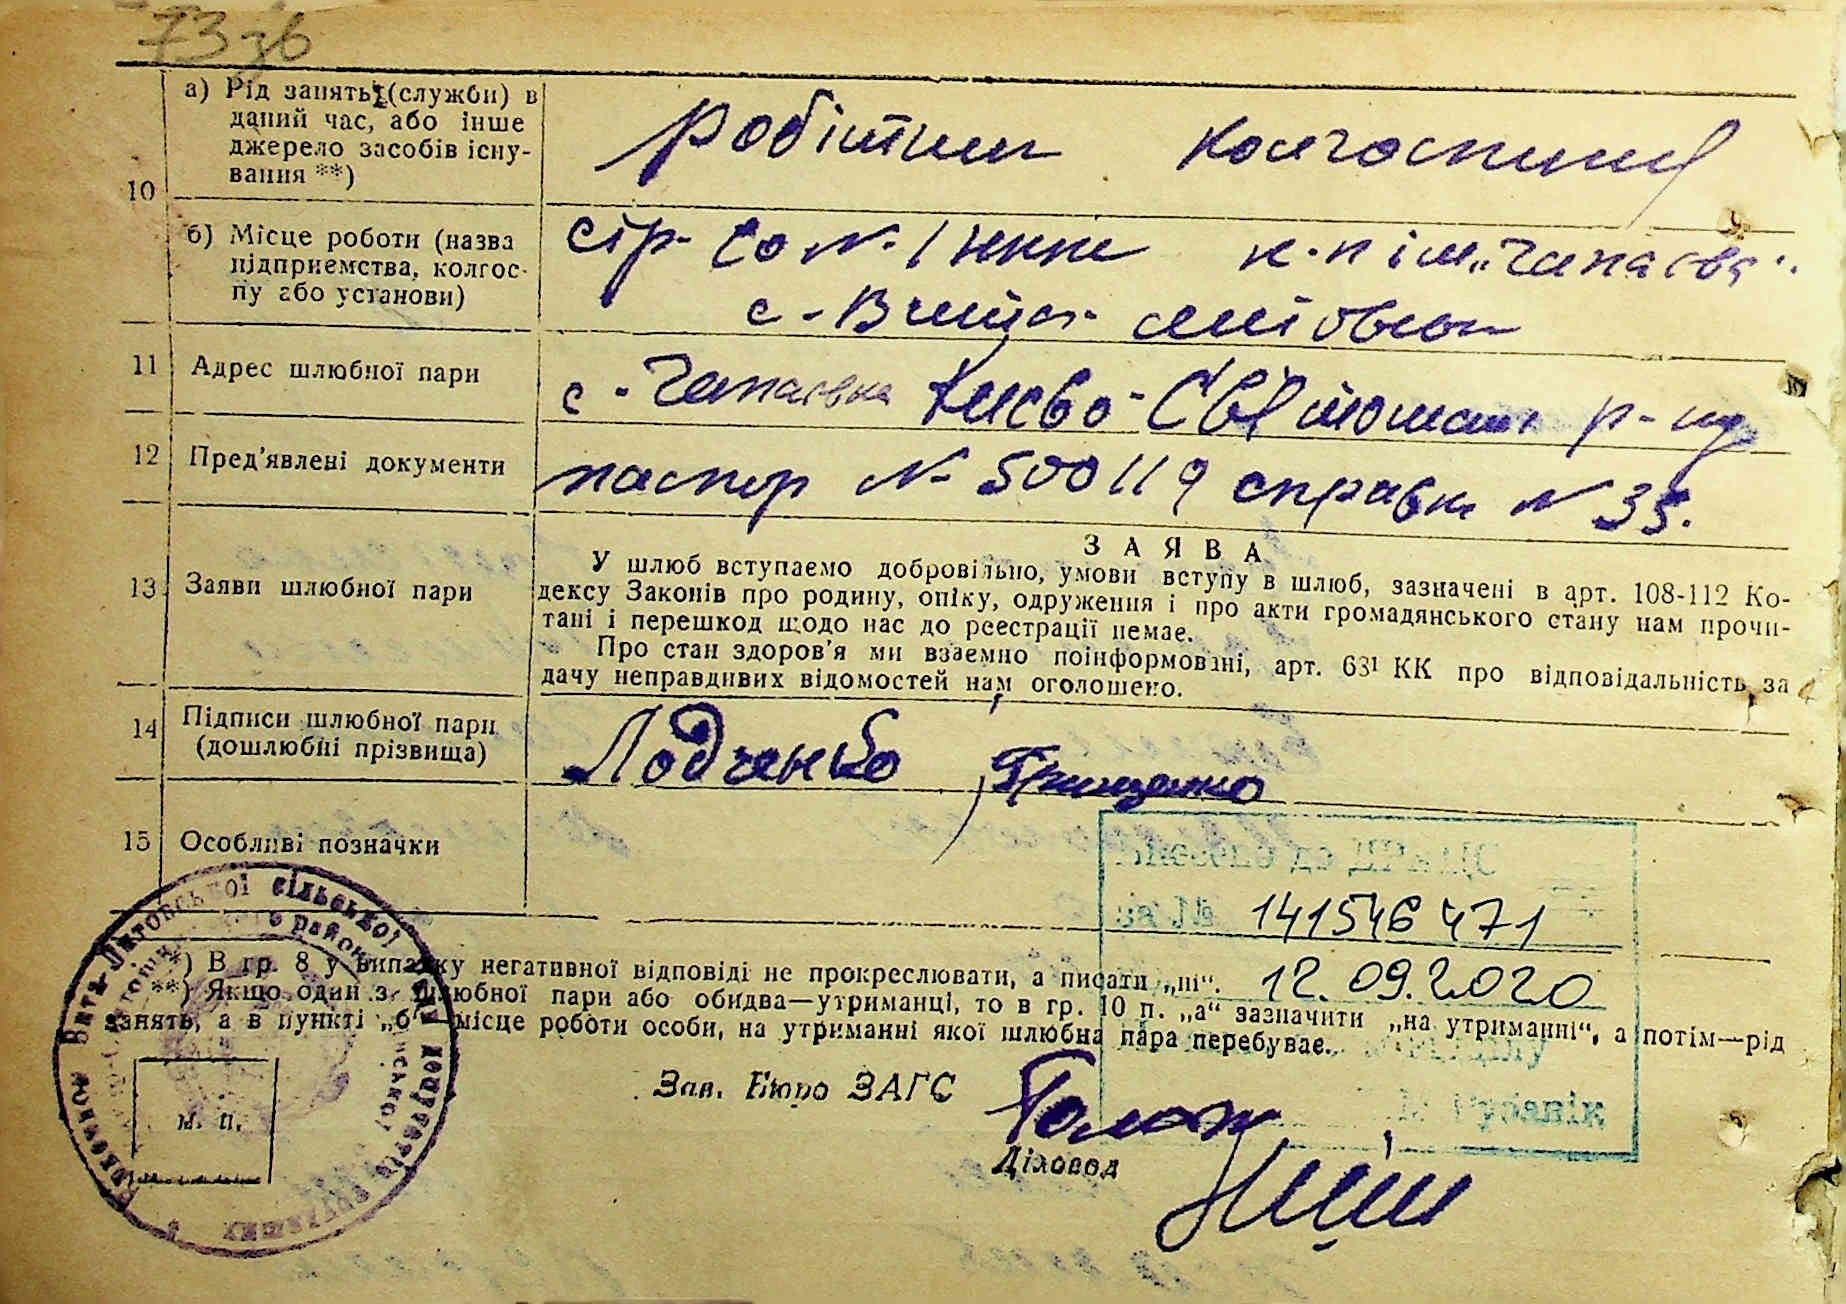 73 зв
10
а) Рід занять (служби) в
даний час, або інше
джерело засобів існу-
вання **)
робітник колгоспниця
б) Місце роботи (назва
підприємства, колгос-
пу або установи)
к-п ім. „Чапаєва".
с. Вита Литовська
11 Адрес шлюбної пари
с. Чапаєвка Києво-Святошин р-ну
12 Пред'явлені документи
паспорт № 500119 справка № 35.
13 Заяви шлюбної пари
ЗАЯВА
У шлюб вступаємо добровільно, умови вступу в шлюб, зазначені в арт. 108-112 Ко-
дексу Законів про родину, опіку, одруження і про акти громадянського стану нам прочи-
тані і перешкод щодо нас до реєстрації немає.
Про стан здоров'я ми взаємно поінформовані, арт. 63¹ КК про відповідальність за
дачу неправдивих відомостей нам оголошено.
14 Підписи шлюбної пари
(дошлюбні прізвища)
Лодченко Грищенко
15 Особливі позначки
Внесено до ДРАЦС
за № 141546471
12.09.2020
*) В гр. 8 у випадку негативної відповіді не прокреслювати, а писати „ні".
**) Якщо один з шлюбної пари або обидва—утриманці, то в гр. 10 п. „а" зазначити „на утриманні", а потім—рід
занять, а в пункті „б"—місце роботи особи, на утриманні якої шлюбна пара перебуває.
Зав. Бюро ЗАГС
Діловод
М. П.